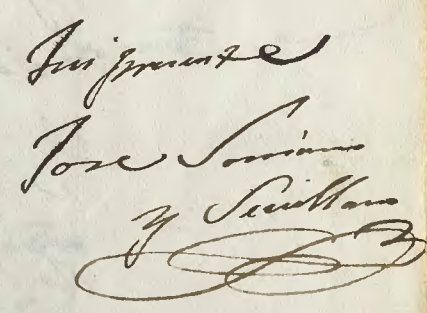 Fui presente
Jose Soriano
y Sevillano